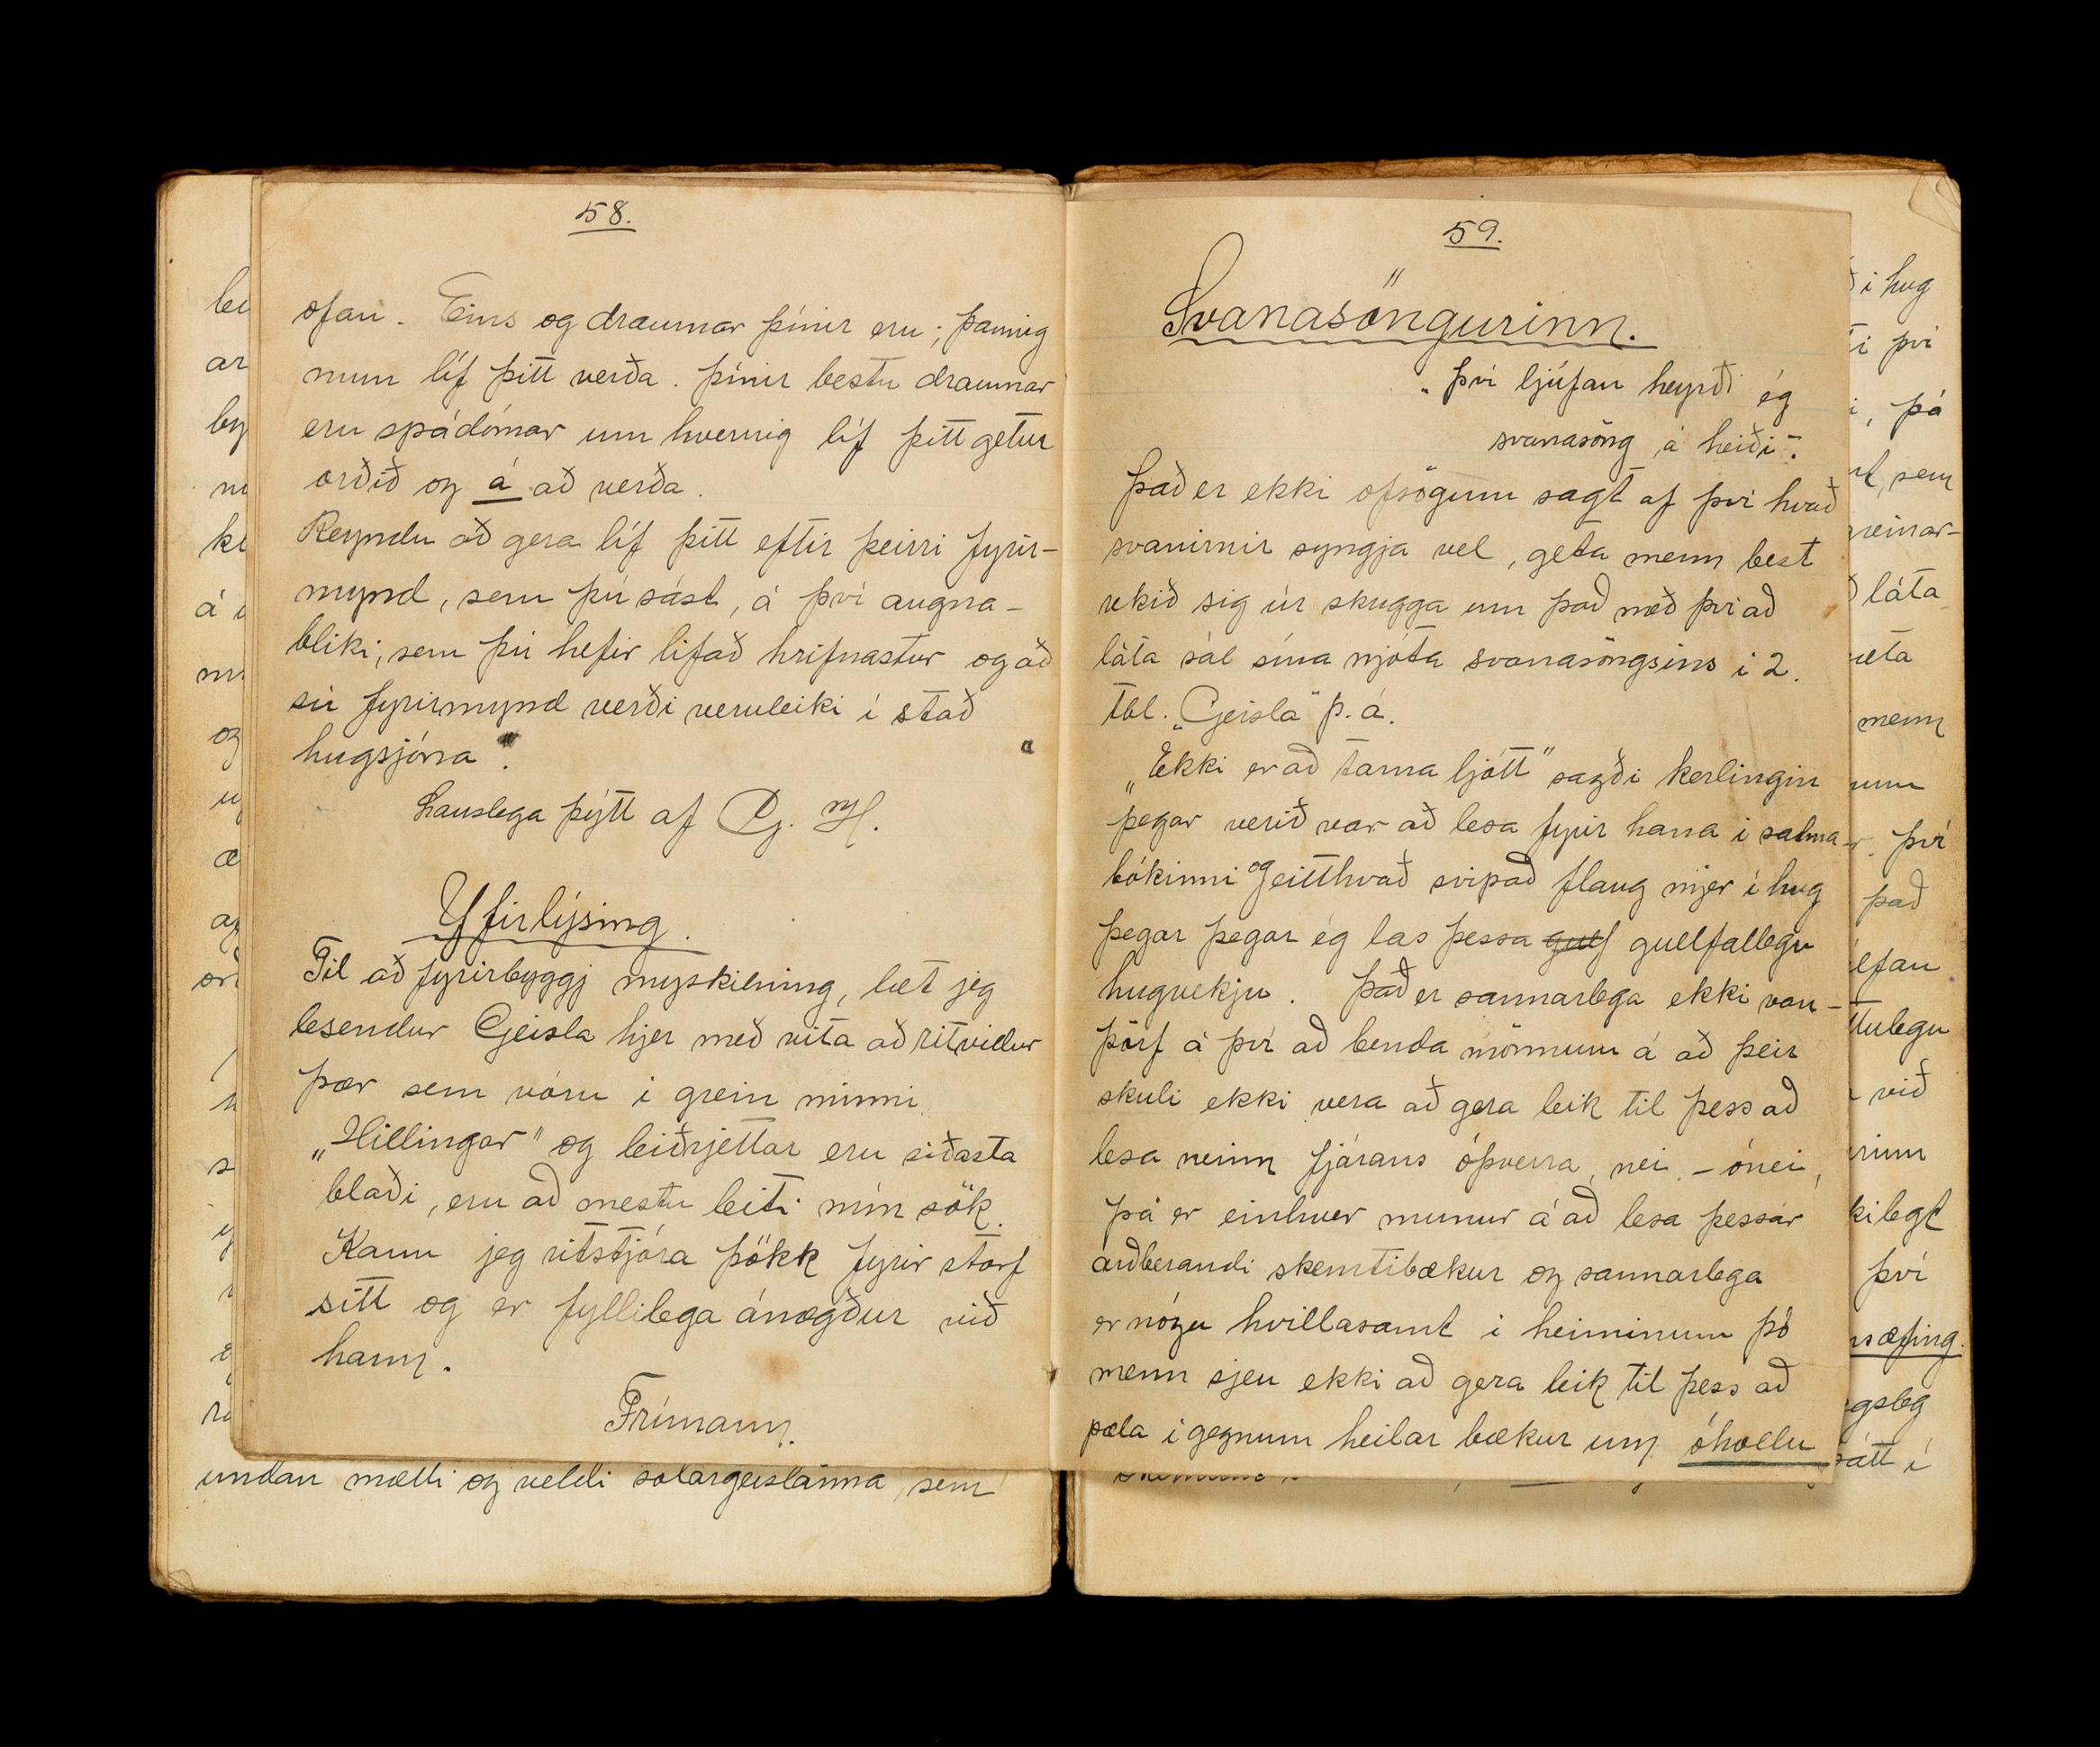 58.
ofan. Eins og draumar þínir eru; þannig
mun líf þitt verða. Þínir bestu draumar
eru spádómar um hvernig líf þitt getur
orðið og á að verða.
Reyndu að gera líf þitt eftir þeirri fyrir-
mynd, sem þú sást, á því augna-
bliki, sem þú hefir lifað hrifnastur og að
sú fyrirmynd verði veruleiki í stað
hugsjóna".
Lauslega þýtt af G. H.
Yfirlýsing.
Til að fyrirbyggj myskilning, læt jeg
lesendur Geisla hjer með vita að ritvillur
þær sem vóru í grein minni
„Hillingar" og leiðrjettar eru síðasta
blaði, eru að mestu leiti mín sök.
Kann jeg ritstjóra þökk fyrir starf
sitt og er fyllilega ánægður við
hann.
Frímann.
undan mætti og veldi sólargeislanna, sem
59.
Svanasöngurinn.
„Því ljúfan heyrði ég
svanasöng á heiði".
Það er ekki ofsögum sagt af því hvað
svanirnir syngja vel, geta menn best
rekið sig úr skugga um það með því að
láta sál sína njóta svanasöngsins í 2.
tbl. „Geisla" þ. á.
„Ekki er að tarna ljótt" sagði kerlingin
þegar verið var að lesa fyrir hana í salma-
bókinni og eitthvað svipað flaug mjer í hug
þegar þegar ég las þessa gulf gullfallegu
hugvekju. Það er sannarlega ekki van-
þörf á því að benda mönnum á að þeir
skuli ekki vera að gera leik til þess að
lesa neinn fjárans óþverra, nei - ónei,
þá er einhver munur á að lesa þessar
arðberandi skemtibækur og sannarlega
er nógu hvillasamt í heiminum þó
menn sjeu ekki að gera leik til þess að
pæla í gegnum heilar bækur um óhollu
í hug
því
, þá
sem
greinar-
láta
menn
því
það
við
því